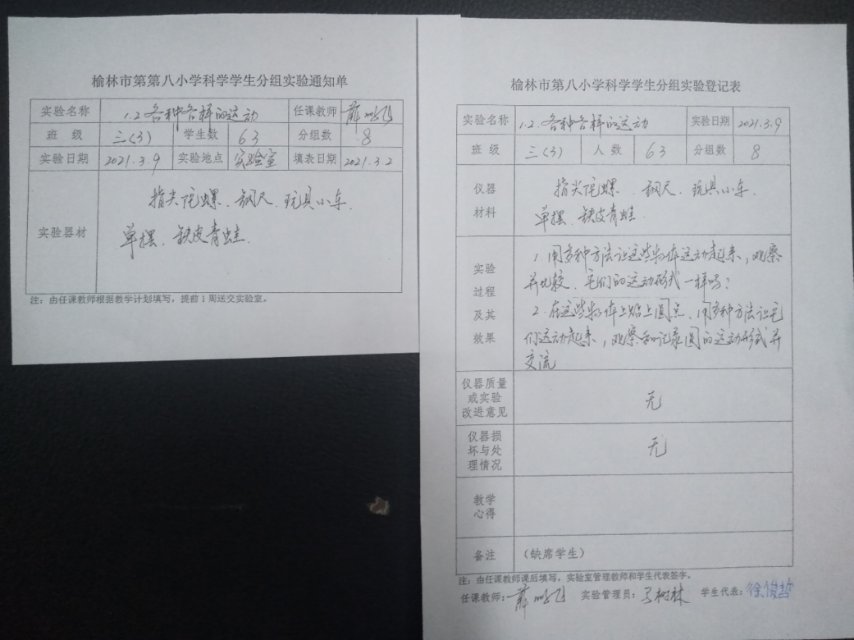 榆林市第第八小学科学学生分组实验通知单
实验名称 1.2各种各样的运动 任课教师
班 级 三(3) 学生数 63 分组数 8
实验日期 2021.3.9 实验地点 实验室 填表日期 2021.3.2
实验器材
指尖陀螺、钢尺、玩具小车、
单摆、铁皮青蛙.
注:由任课教师根据教学计划填写,提前1周送交实验室。
榆林市第八小学科学学生分组实验登记表
实验名称 1.2.各种各样的运动 实验日期 2021.3.9
班 级 三(3) 人 数 63 分组数 8
仪器
材料
指尖陀螺、钢尺、玩具小车、
单摆、铁皮青蛙.
实验
过程
及其
效果
1.用多种方法让这些物体运动起来,观察
并比较,它们的运动形式一样吗?
2.在这些物体上贴上圆点、用多种方法让它
们运动起来,观察和记录圆的运动形式并
交流
仪器质量
或实验
改进意见
无
仪器损
坏与处
理情况
无
教学
心得
备注 (缺席学生)
注:由任课教师课后填写,实验室管理教师和学生代表签字。
任课教师: 实验管理员: 马树林 学生代表: 徐俊哲